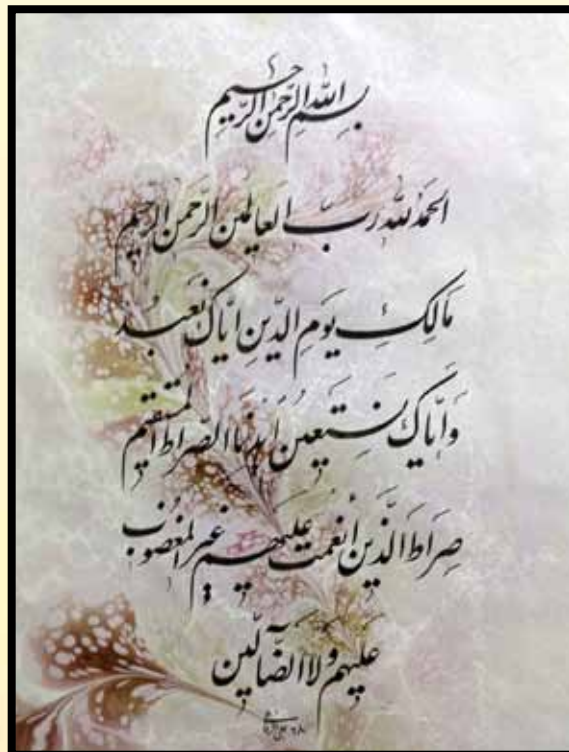 بسم الله الرحمن الرحیم
الحمد لله رب العالمین الرحمن الرحیم
مالک یوم الدین ایاک نعبد
وایاک نستعین اهدنا الصراط المستقیم
صراط الذین انعمت علیهم غیر المغضوب
علیهم ولا الضآلین